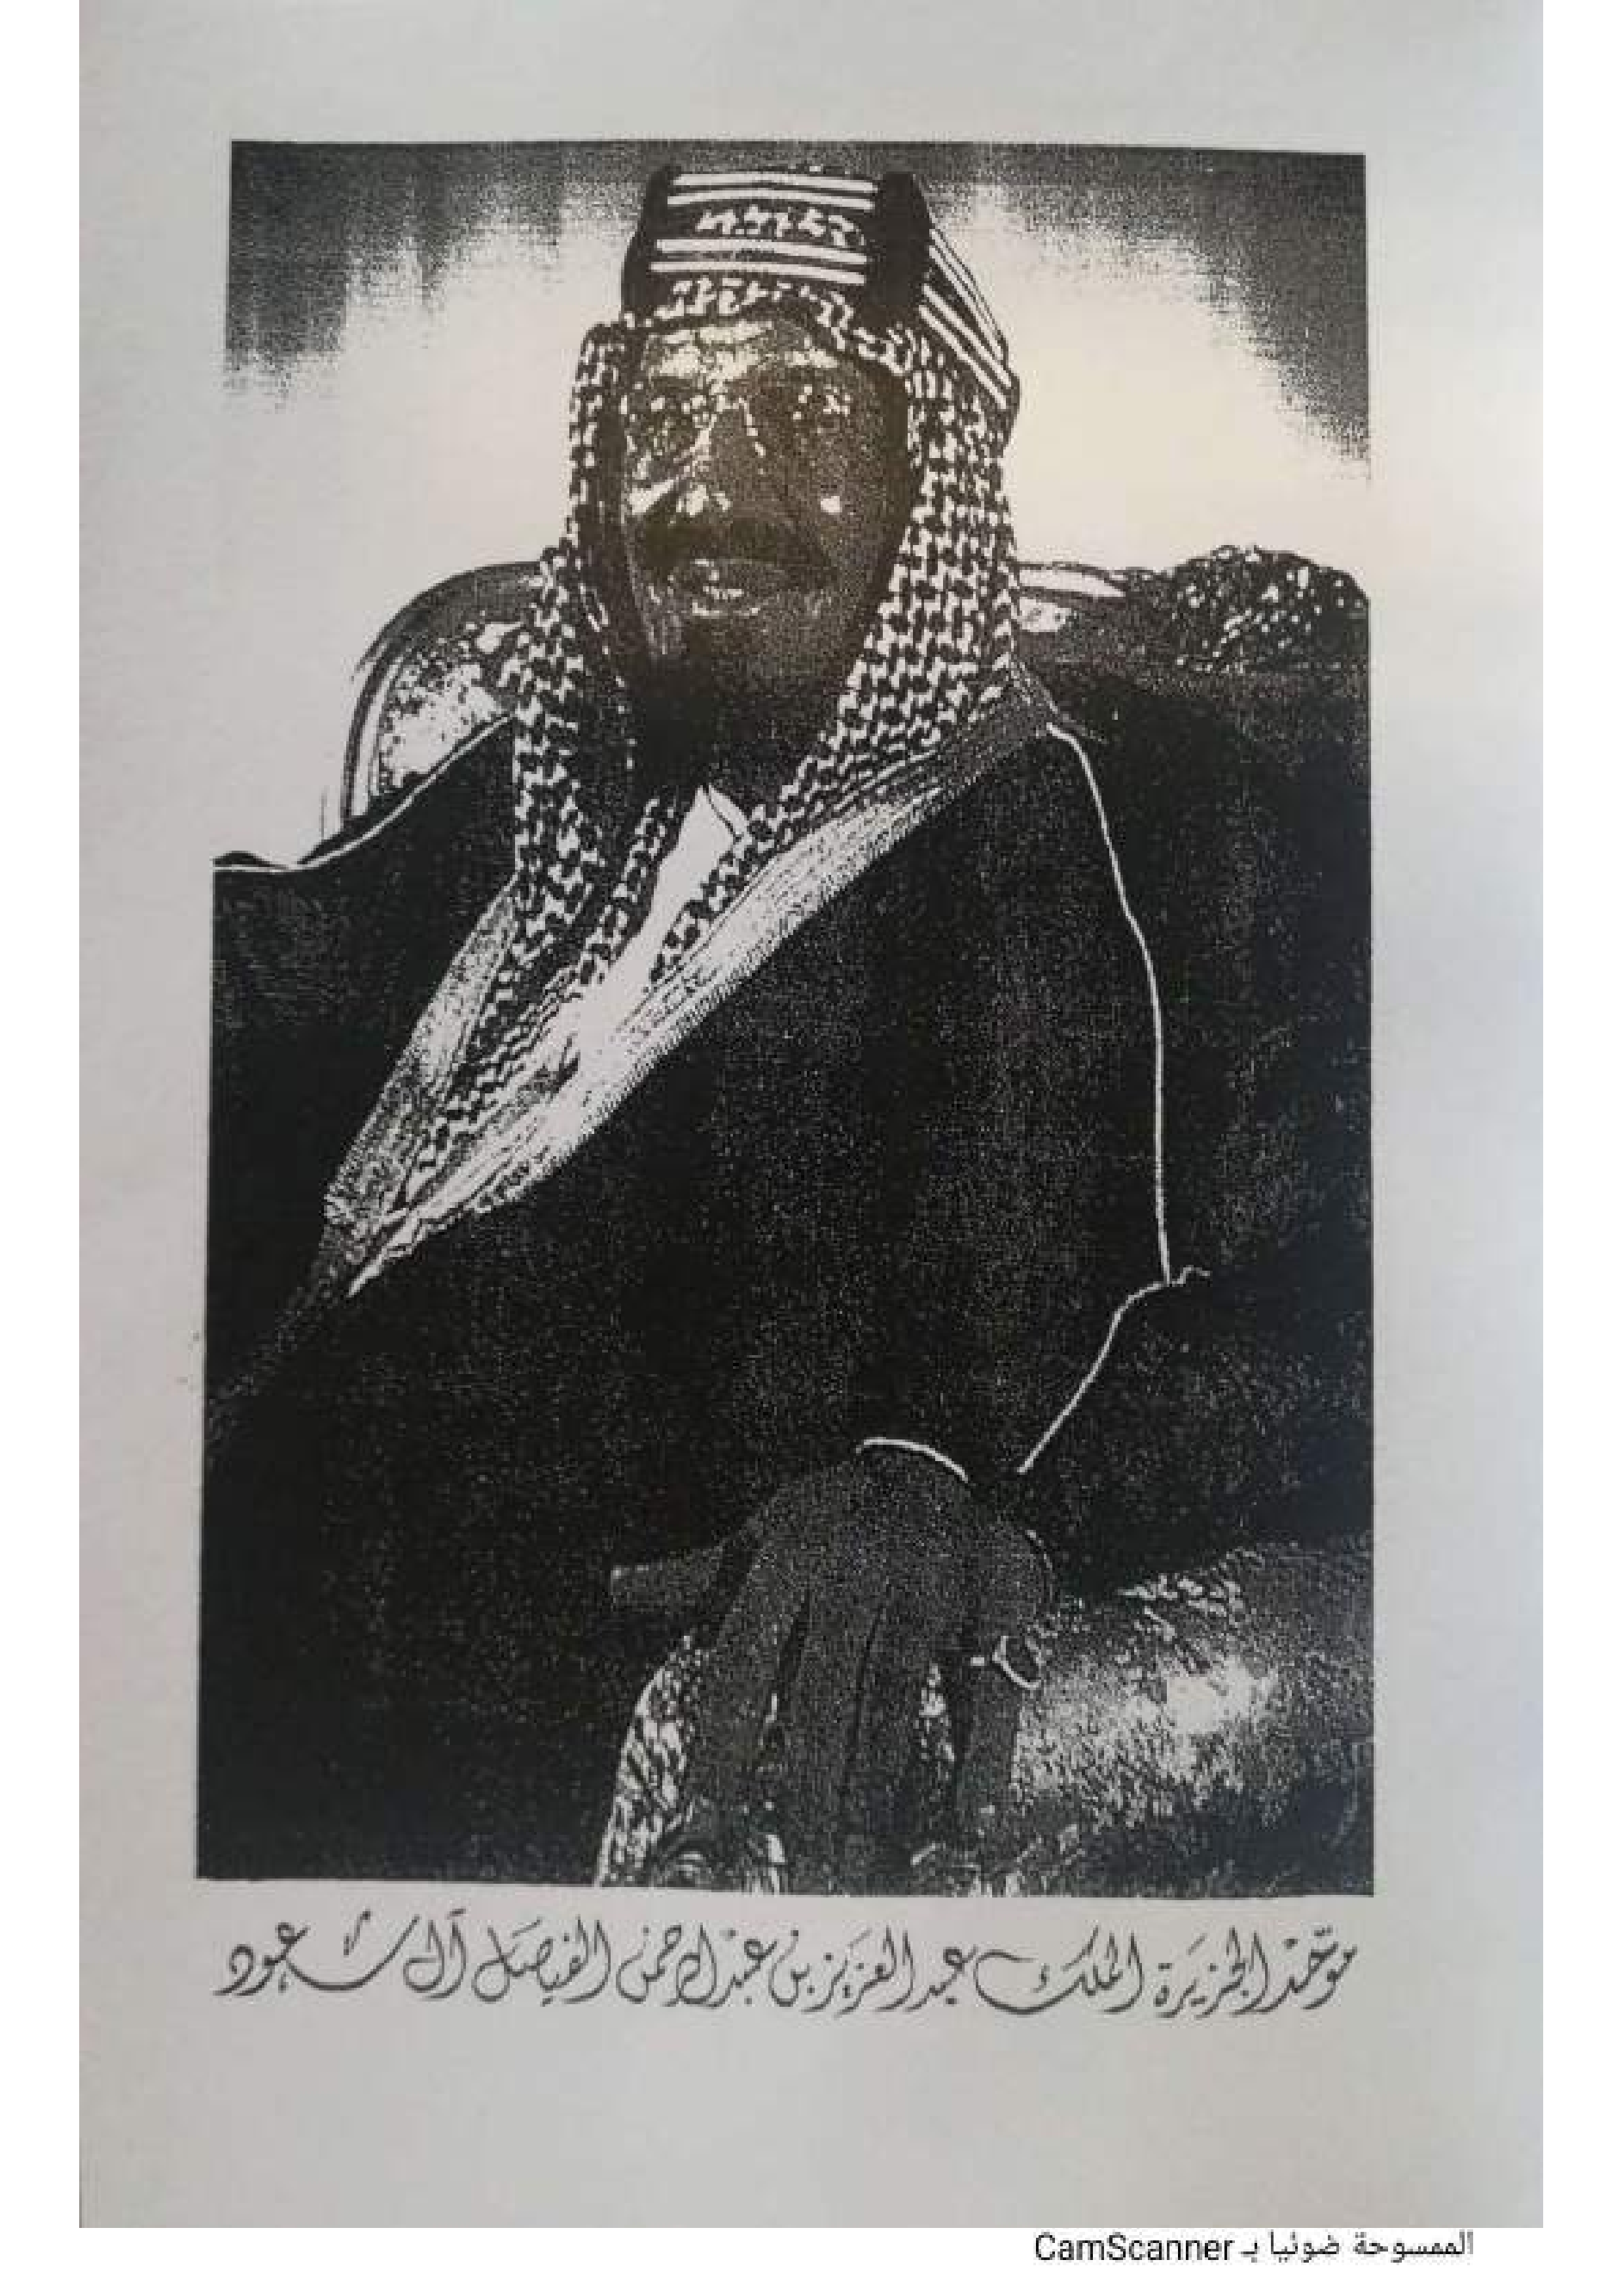 موَحّد الجزيرَة الملك عبد العزيَز بن عبْد الرحمن الفيصَل آل سُعود
الممسوحة ضوئيا بـ CamScanner